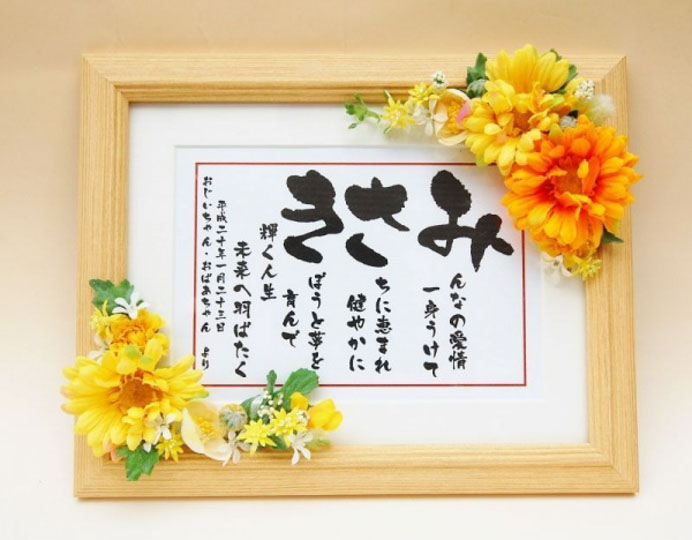 みさき
んなの愛情
一身うけて
ちに恵まれ
健やかに
ぼうと夢を
育んで
輝く人生
未来へ羽ばたく
平成二十年一月二十三日
おじいちゃん・おばあちゃん より